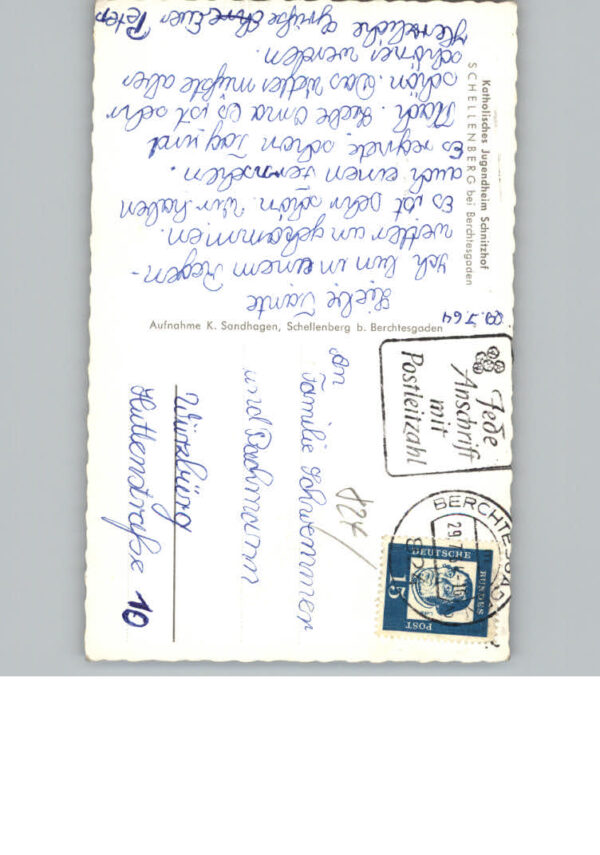 Katholisches Jugendheim Schnitzhof
SCHELLENBERG bei Berchtesgaden
29.7.64
Liebe Tante
Ich bin in einem Regen-
wetter angekommen.
Es ist sehr schön. Wir haben
auch einen Fernseher.
Es regnete schon Tag und
Nach. Liebe Oma es ist sehr
schön. Das Wetter müßte aber
schöner werden.
Herzliche Grüße Euer Peter
Aufnahme K. Sandhagen, Schellenberg b. Berchtesgaden
Jede
Anschrift
mit
Postleitzahl
BERCHTESGAD
29.7
DEUTSCHE
BUNDES
POST
15
An
Familie Schwemmer
und Bachmann
Würzburg
Huttenstraße 10